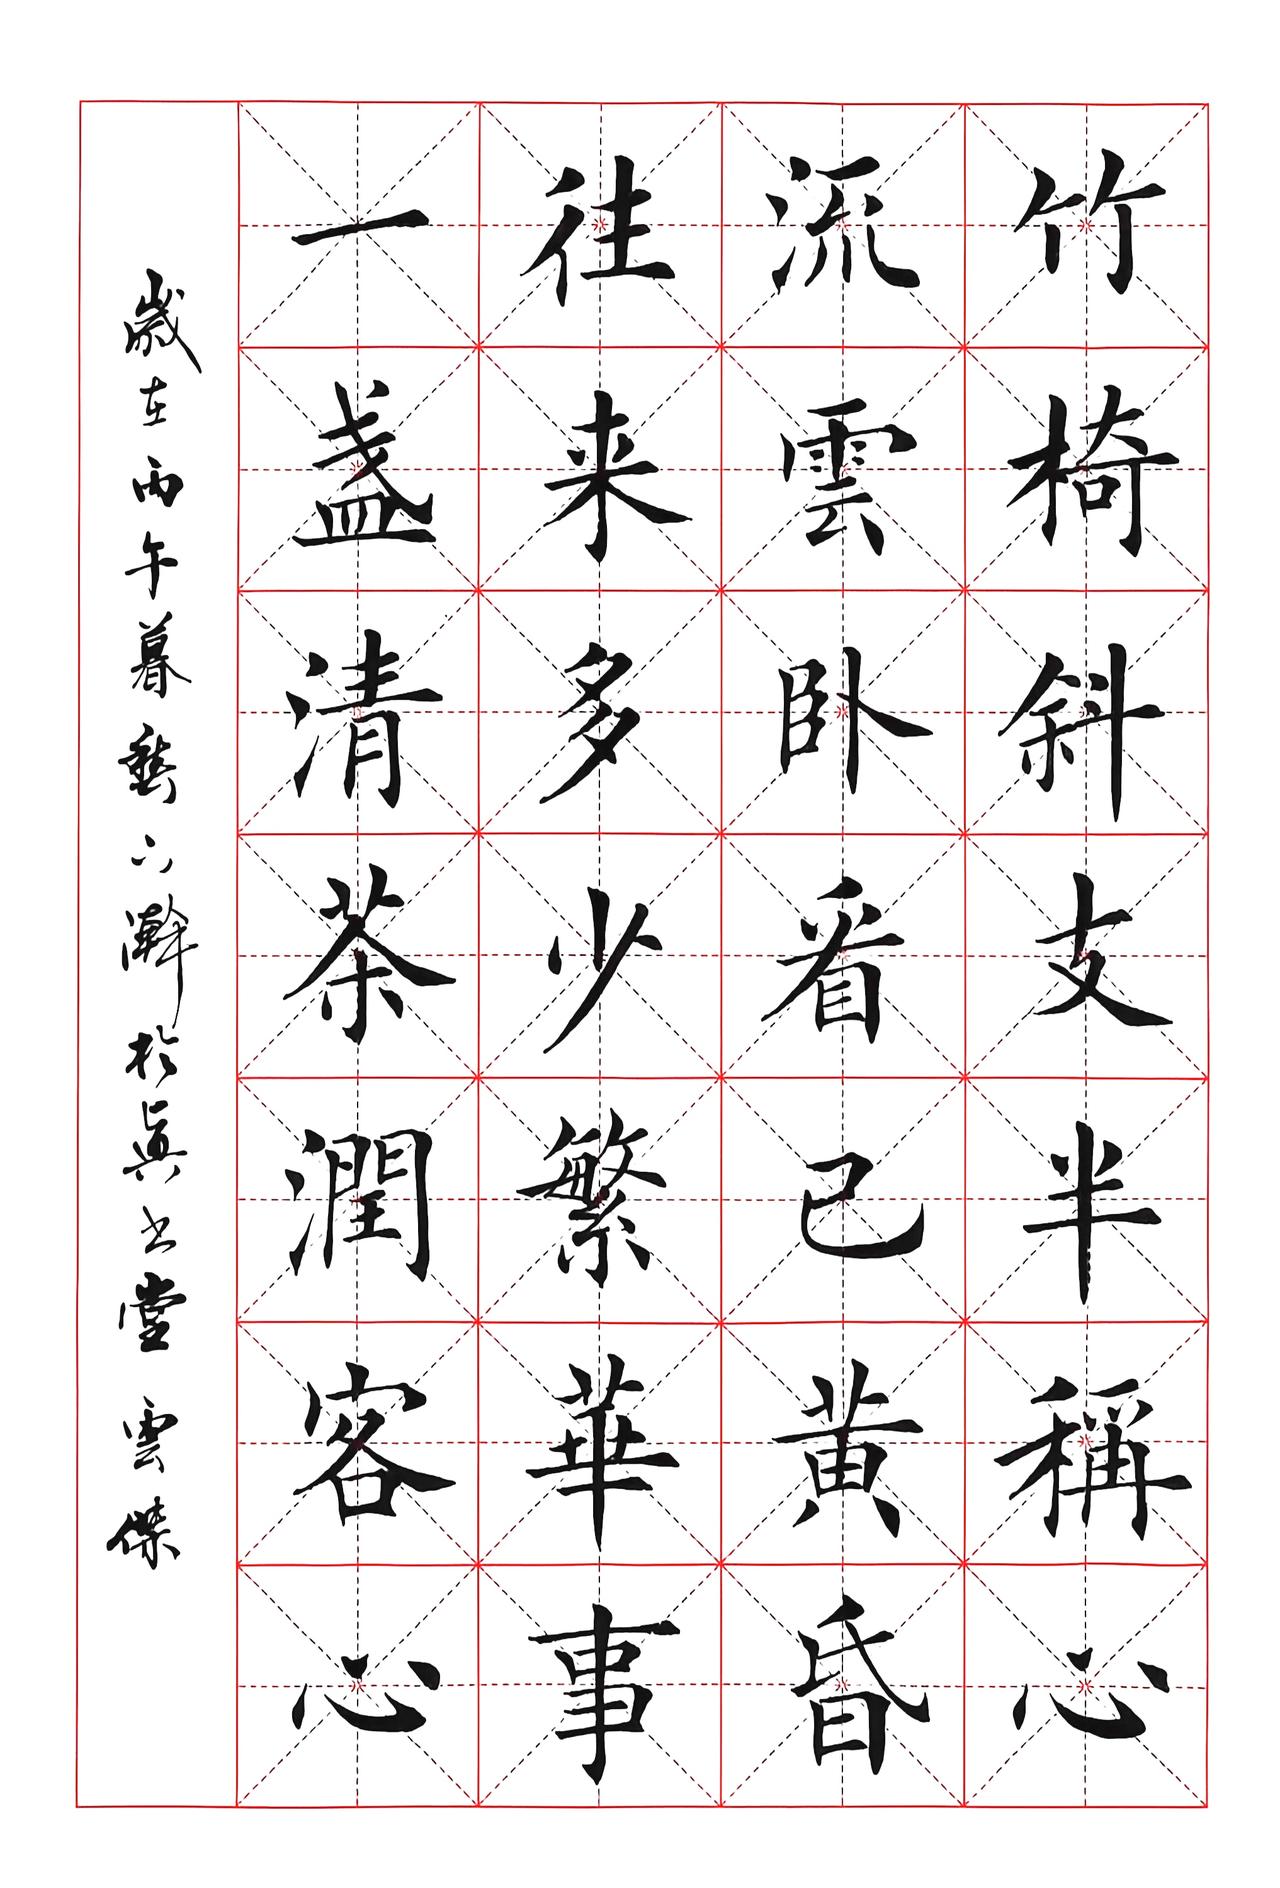 竹椅斜支半稱心
流雲卧看已黄昏
往来多少繁華事
一盞清茶潤客心
歲在丙午暮 六瀚於真書堂 雲傑